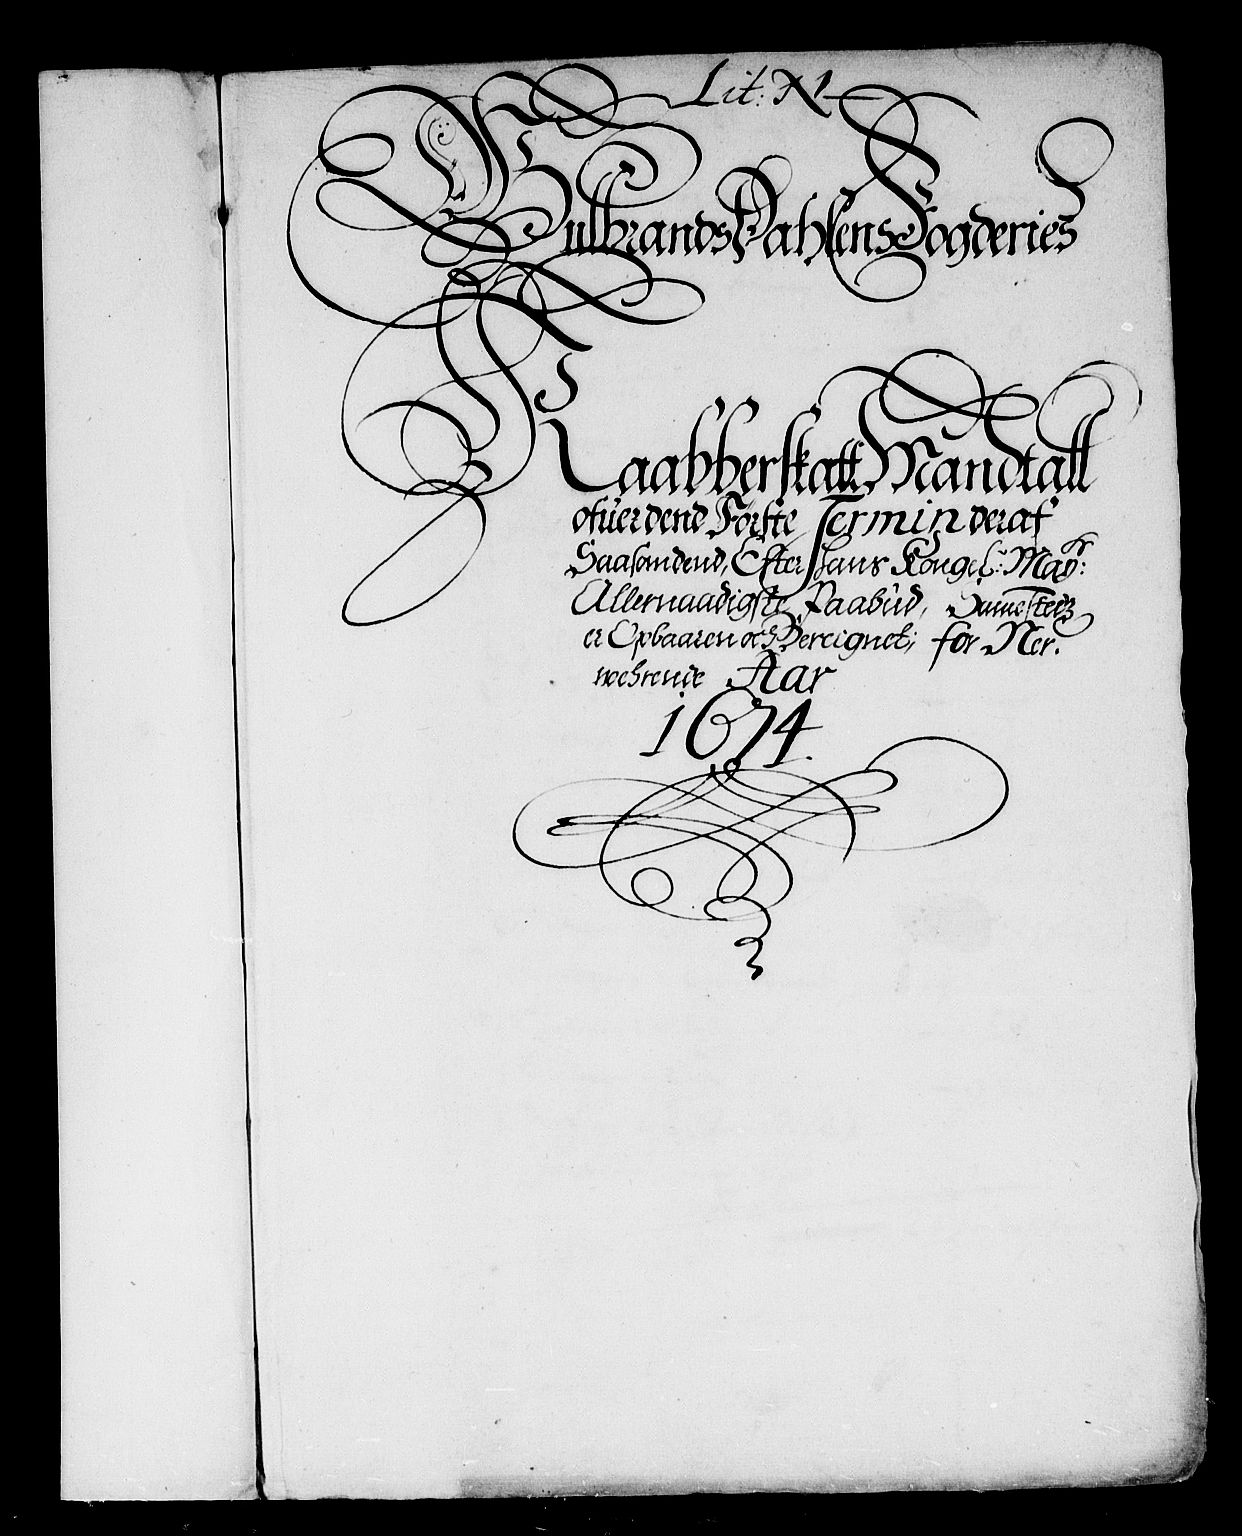 Lit: N
GulbrandsDahlens Fogderies
Kaabberskatt Mandtall
ofuer dend Første Termin deraf
Saasom dend, Efter Hans Kongel: May:
Allernaadigste Paabud,
er Opbaaren och Bereignet; for Ner.
wehrende Aar
1674.